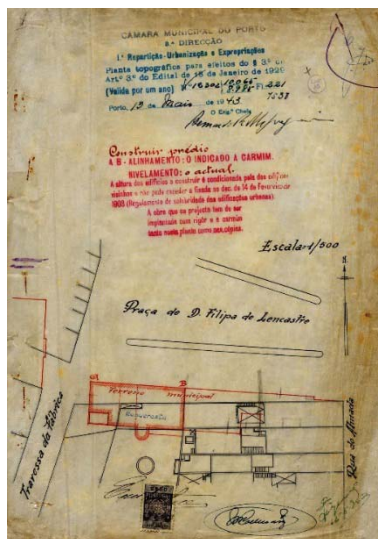 CÂMARA MUNICIPAL DO PORTO
2.ª DIRECÇÃO
1.ª Repartição-Urbanização e Expropriações
Planta topográfica para efeitos do § 3.º
Art.º 3.º do Edital de 18 de Janeiro de 1929
(Valida por um ano)
Porto, 13 de Maio de 1943
O Eng.º Chefe
Construir prédio
A B - ALINHAMENTO: O INDICADO A CARMIM.
NIVELAMENTO: o actual.
A altura dos edificios a construir é condicionada pela dos edificios
visinhos e não pode exceder a fixada no dec. de 14 de Fevereiro de
1903 (Regulamento de salubridade das edificações urbanas)
A obra que se projeta tem de ser
implantada com rigôr e a carmim
tanto nesta planta como nas cópias.
Escala=1/500
Praça de D. Filipa de Lencastre
A
B
Terreno municipal
Travessa da Fábrica
Rua do Almada